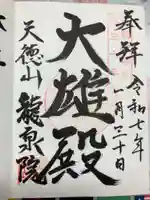 奉拝
令和七年
一月三十日
大雄殿
天徳山
龍泉院